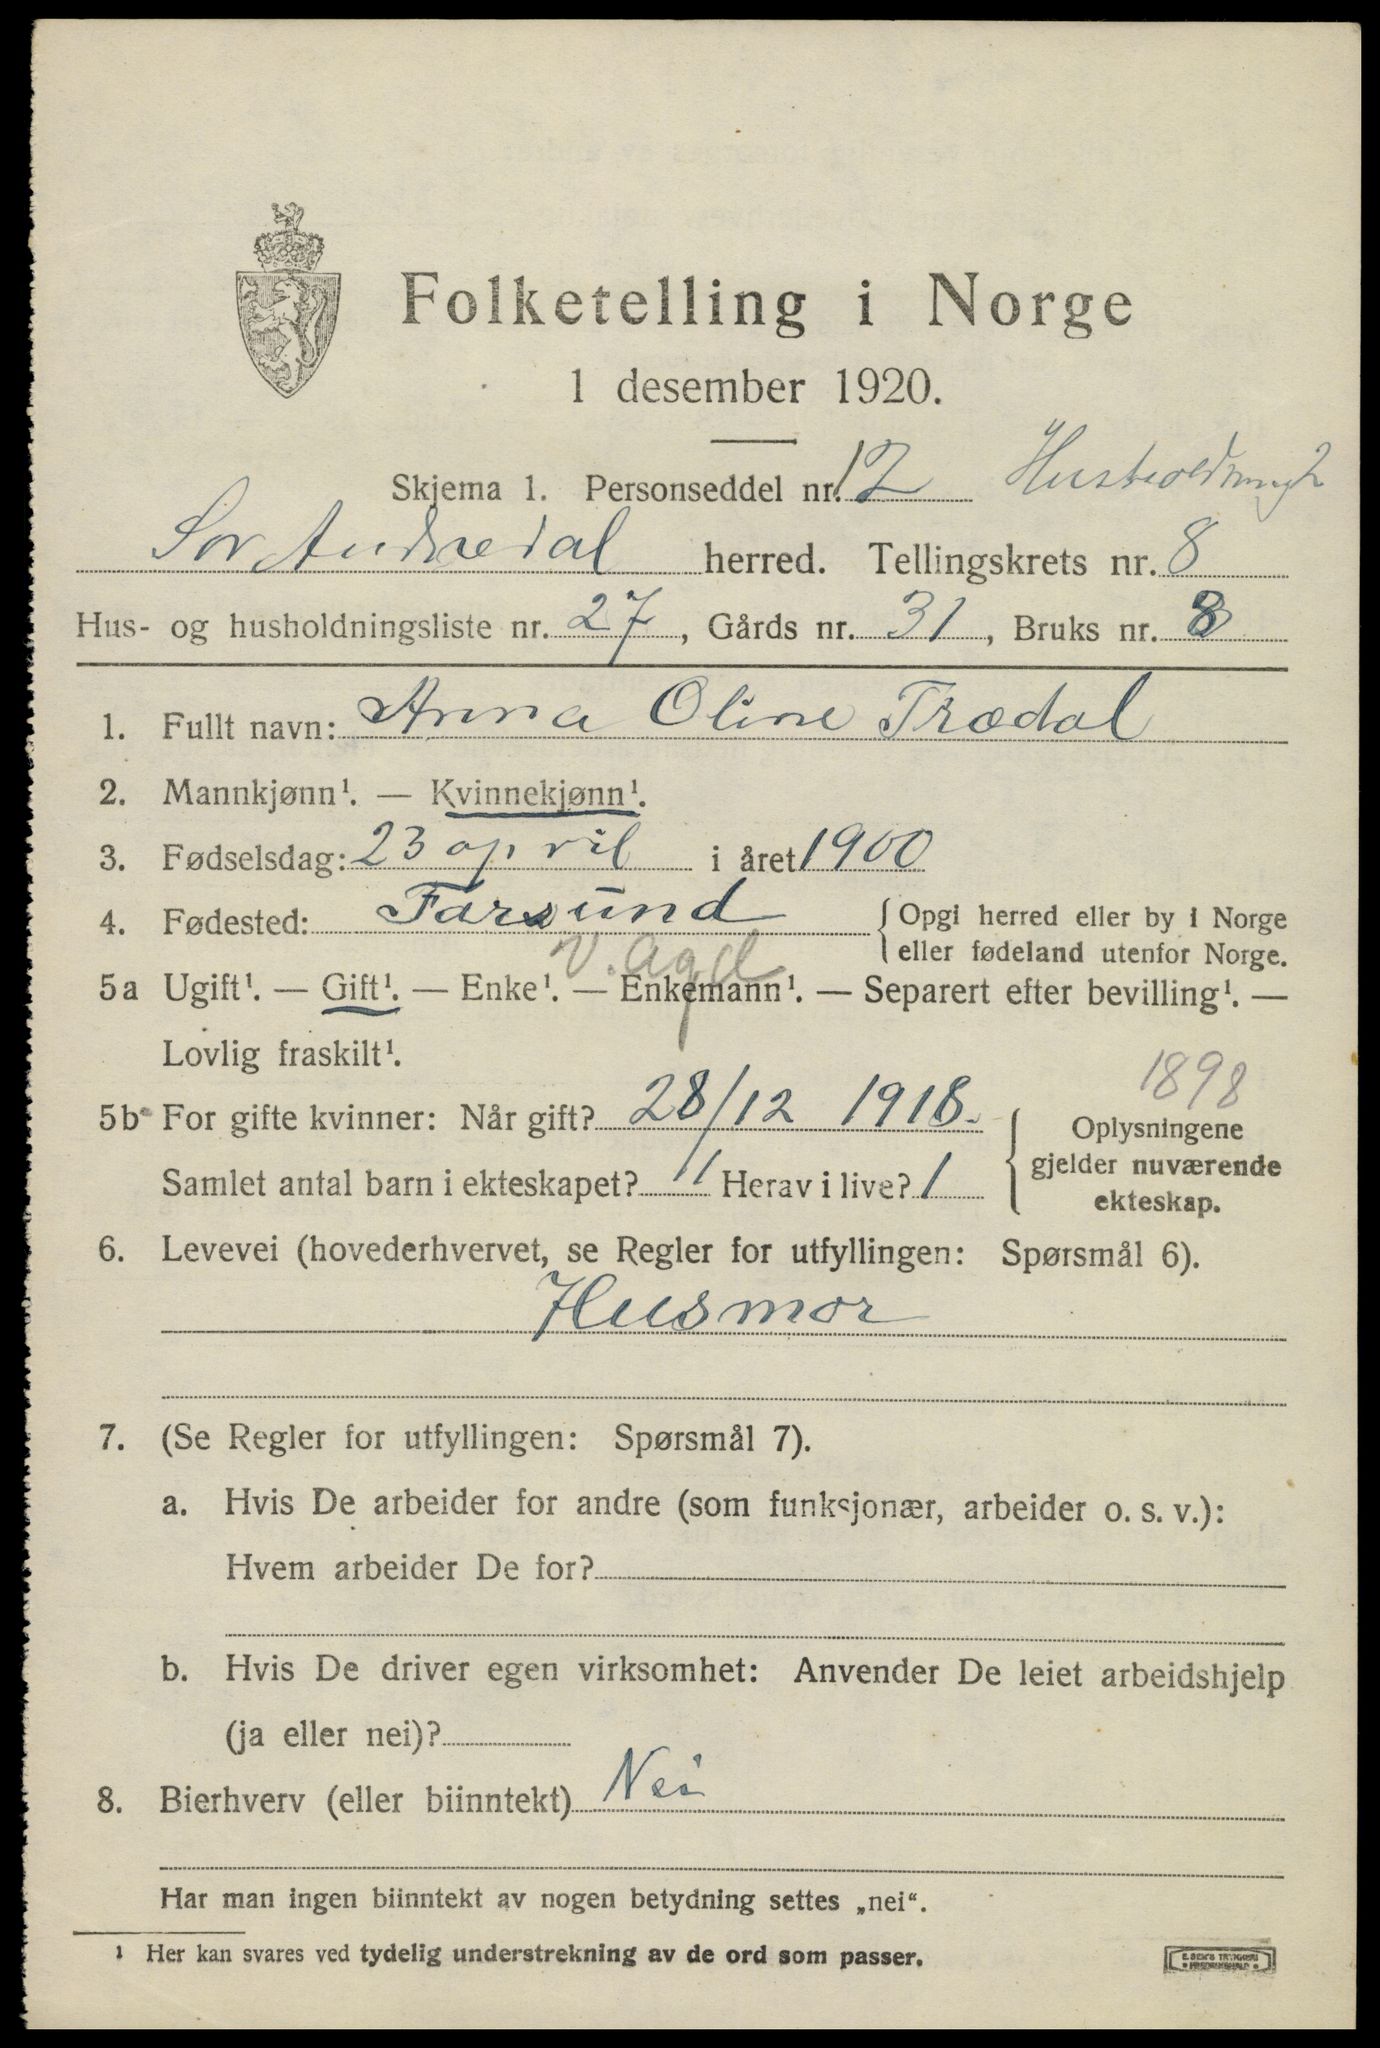 Folketelling i Norge
1 desember 1920.
Skjema 1. Personseddel nr. 12 Husholdning 2
Sør Audnedal herred. Tellingskrets nr. 8
Hus- og husholdningsliste nr. 27, Gårds nr. 31, Bruks nr. 8
1. Fullt navn: Anna Oline Trædal
2. Mannkjønn¹. — Kvinnekjønn¹.
3. Fødselsdag: 23 april i året 1900
4. Fødested: Farsund { Opgi herred eller by i Norge
eller fødeland utenfor Norge.
V. Agd
5a Ugift¹. — Gift¹. — Enke¹. — Enkemann¹. — Separert efter bevilling¹. —
Lovlig fraskilt¹.
1898
5b For gifte kvinner: Når gift? 28/12 1918.
Samlet antal barn i ekteskapet? 1 Herav i live? 1
{ Oplysningene
gjelder nuværende
ekteskap.
6. Levevei (hovederhvervet, se Regler for utfyllingen: Spørsmål 6).
Husmor
7. (Se Regler for utfyllingen: Spørsmål 7).
a. Hvis De arbeider for andre (som funksjonær, arbeider o. s. v.):
Hvem arbeider De for?
b. Hvis De driver egen virksomhet: Anvender De leiet arbeidshjelp
(ja eller nei)?
8. Bierhverv (eller biinntekt) Nei
Har man ingen biinntekt av nogen betydning settes „nei“.
¹ Her kan svares ved tydelig understrekning av de ord som passer.